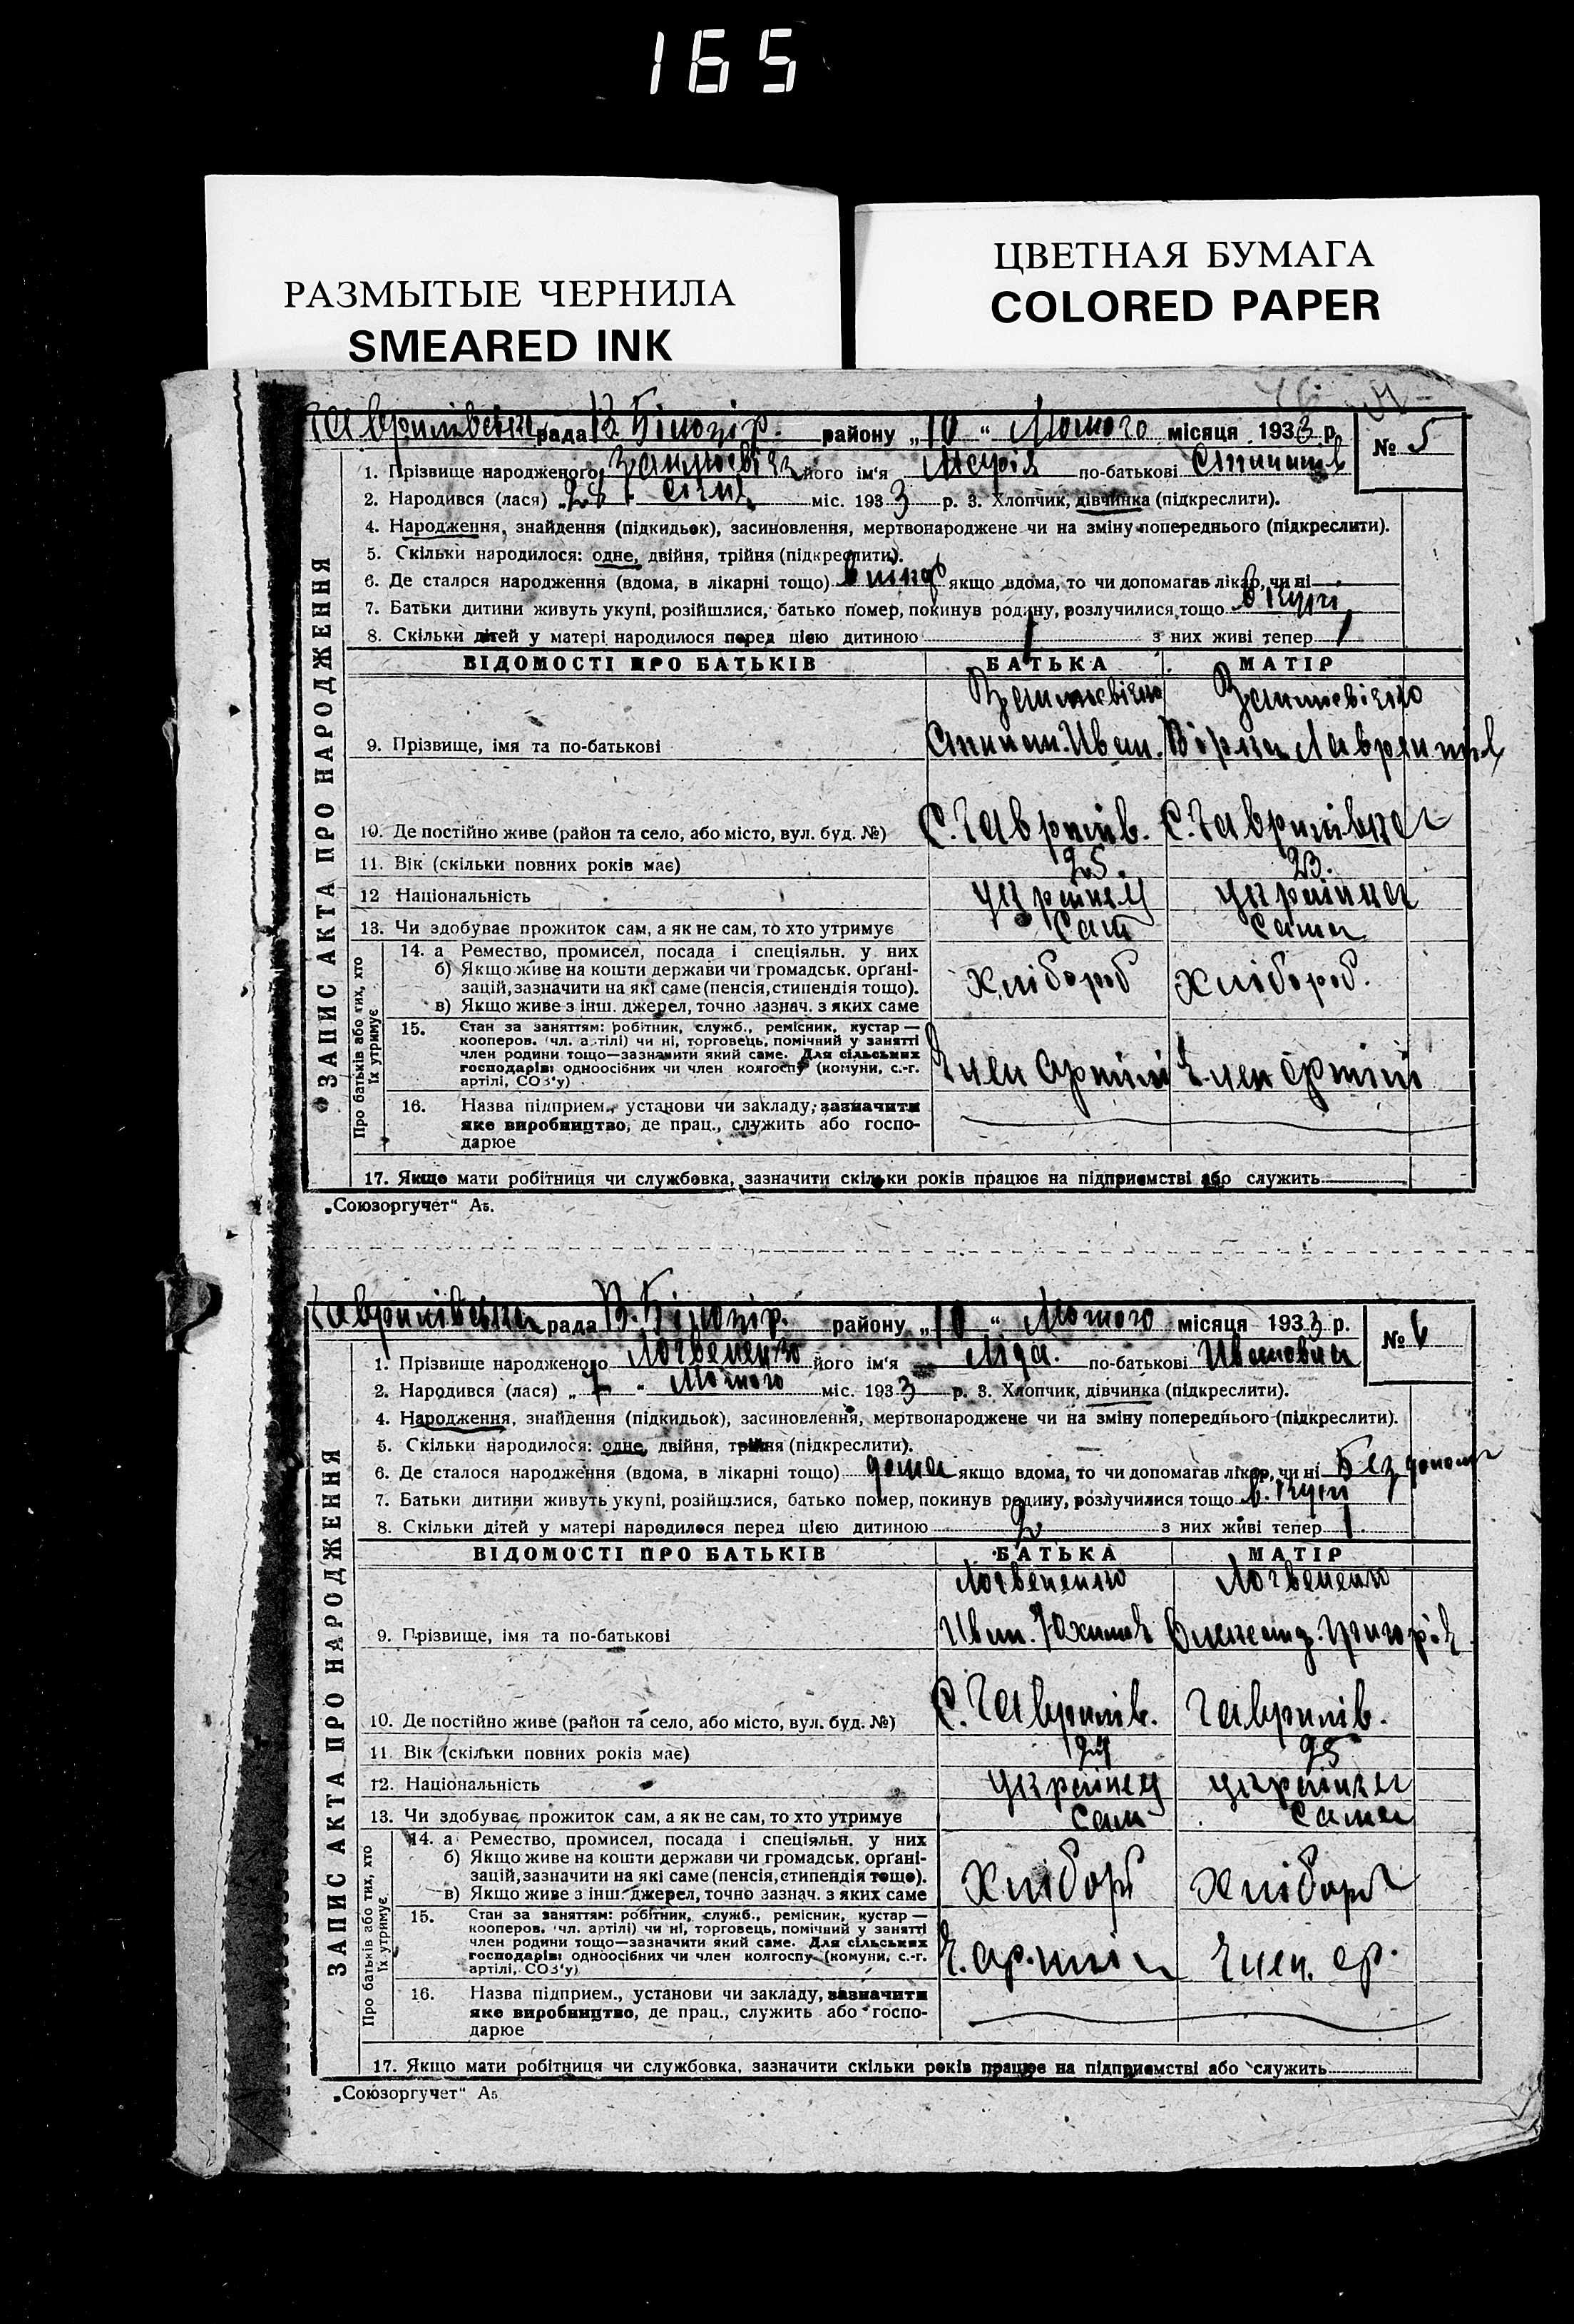 165
РАЗМЫТЫЕ ЧЕРНИЛА
SMEARED INK
ЦВЕТНАЯ БУМАГА
COLORED PAPER
рада В. Білозір. району „10“ Лютого місяця 1933 р.
№ 5
1. Прізвище народженого його ім'я Марія по-батькові
2. Народився (лася) „28“ січня міс. 1933 р. 3. Хлопчик, дівчинка (підкреслити).
4. Народження, знайдення (підкидьок), засиновлення, мертвонароджене чи на зміну попереднього (підкреслити).
5. Скільки народилося: одне, двійня, трійня (підкреслити).
6. Де сталося народження (вдома, в лікарні тощо) якщо вдома, то чи допомагав лікар, чи ні —
7. Батьки дитини живуть укупі, розійшлися, батько помер, покинув родину, розлучилися тощо в купі
8. Скільки дітей у матері народилося перед цією дитиною 1 з них живі тепер 1
ВІДОМОСТІ ПРО БАТЬКІВ БАТЬКА МАТІР
ЗАПИС АКТА ПРО НАРОДЖЕННЯ
9. Прізвище, імя та по-батькові Іван.
10. Де постійно живе (район та село, або місто, вул. буд. №) С. Гаврилів. С. Гаврилівка
11. Вік (скільки повних років має) 25. 23.
12 Національність українец українка
13. Чи здобуває прожиток сам, а як не сам, то хто утримує Сам Сама
Про батьків або тих, хто їх утримує
14. а Ремество, промисел, посада і спеціяльн. у них
б) Якщо живе на кошти держави чи громадськ. орґані-
зацій, зазначити на які саме (пенсія, стипендія тощо). Хлібороб Хлібороб.
в) Якщо живе з інш. джерел, точно зазнач. з яких саме
15. Стан за заняттям: робітник, служб., ремісник, кустар —
кооперов. (чл. артілі) чи ні, торговець, помічний у занятті
член родини тощо—зазначити який саме. Для сільських
господарів: одноосібних чи член колгоспу (комуни, с.-г.
артілі, СОЗ'у) Член артілі Член артілі
16. Назва підприєм., установи чи закладу, зазначити
яке виробництво, де прац., служить або госпо-
дарює
17. Якщо мати робітниця чи службовка, зазначити скільки років працює на підприємстві або служить
„Союзоргучет“ А5.
рада В. Білозір. району „10“ Лютого місяця 1933 р.
№ 6
1. Прізвище народженого Логвененко його ім'я Ліда. по-батькові Ивановна
2. Народився (лася) „7“ Лютого міс. 1933 р. 3. Хлопчик, дівчинка (підкреслити).
4. Народження, знайдення (підкидьок), засиновлення, мертвонароджене чи на зміну попереднього (підкреслити).
5. Скільки народилося: одне, двійня, трійня (підкреслити).
6. Де сталося народження (вдома, в лікарні тощо) дома якщо вдома, то чи допомагав лікар, чи ні Без
7. Батьки дитини живуть укупі, розійшлися, батько помер, покинув родину, розлучилися тощо в. купі
8. Скільки дітей у матері народилося перед цією дитиною 2 з них живі тепер 1
ВІДОМОСТІ ПРО БАТЬКІВ БАТЬКА МАТІР
ЗАПИС АКТА ПРО НАРОДЖЕННЯ
Логвененко Логвененко
9. Прізвище, імя та по-батькові Иван.
10. Де постійно живе (район та село, або місто, вул. буд. №) С. Гаврилів. Гаврилів.
11. Вік (скільки повних років має) 25
12. Національність українец українка
13. Чи здобуває прожиток сам, а як не сам, то хто утримує Сам Сама
Про батьків або тих, хто їх утримує
14. а Ремество, промисел, посада і спеціяльн. у них
б) Якщо живе на кошти держави чи громадськ. орґані-
зацій, зазначити на які саме (пенсія, стипендія тощо).
в) Якщо живе з інш. джерел, точно зазнач. з яких саме
15. Стан за заняттям: робітник, служб., ремісник, кустар —
кооперов. (чл. артілі) чи ні, торговець, помічний у занятті
член родини тощо—зазначити який саме. Для сільських
господарів: одноосібних чи член колгоспу (комуни, с.-г.
артілі, СОЗ'у) Член. ар.
16. Назва підприєм., установи чи закладу, зазначити
яке виробництво, де прац., служить або госпо-
дарює
17. Якщо мати робітниця чи службовка, зазначити скільки років працює на підприємстві або служить
„Союзоргучет“ А5